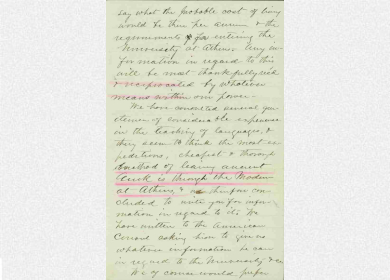 say what the probable cost of living
would be there per annum & the
requirements for entering the
University at Athens. Any in-
formation in regard to this
will be most thankfully rec'd
& reciprocated by whatever
means within our power.
We have consulted several gen-
tlemen of considerable experience
in the teaching of languages, &
they seem to think the most ex-
peditious, cheapest & thorough
method of learning ancient
Greek is through the Modern
at Athens, & we therefore con-
cluded to write you for infor-
mation in regard to it. We
have written to the American
Consul asking him to give us
whatever information he can
in regard to the University &
We of course would prefer